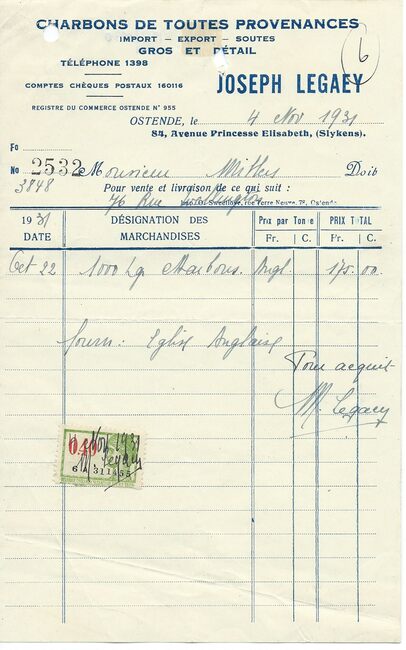 CHARBONS DE TOUTES PROVENANCES
IMPORT — EXPORT — SOUTES
GROS ET DÉTAIL
6
TÉLÉPHONE 1398
COMPTES CHÈQUES POSTAUX 160116
JOSEPH LEGAEY
REGISTRE DU COMMERCE OSTENDE Nº 955
OSTENDE, le 4 Nov 1931
84, Avenue Princesse Elisabeth, (Slykens).
Fo
No 2532 Monsieur Doit
3848
Pour vente et livraison de ce qui suit :
76 Rue Wellington
rue Terre Neuve, 78, Ostende
1931 DÉSIGNATION DES Prix par Tonne PRIX TOTAL
DATE MARCHANDISES Fr. C. Fr. C.
Oct 22 1000 kg Charbons. Angl. 175.00.
fourn: Eglise Anglaise
Pour acquit
M. Legaey
0,40
Nov 1931
M. Legaey
6 A 311455